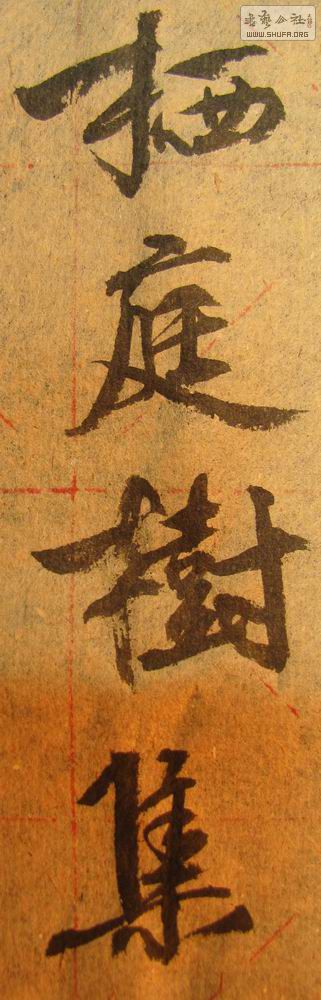 書藝公社
WWW.SHUFA.ORG
栖庭樹集